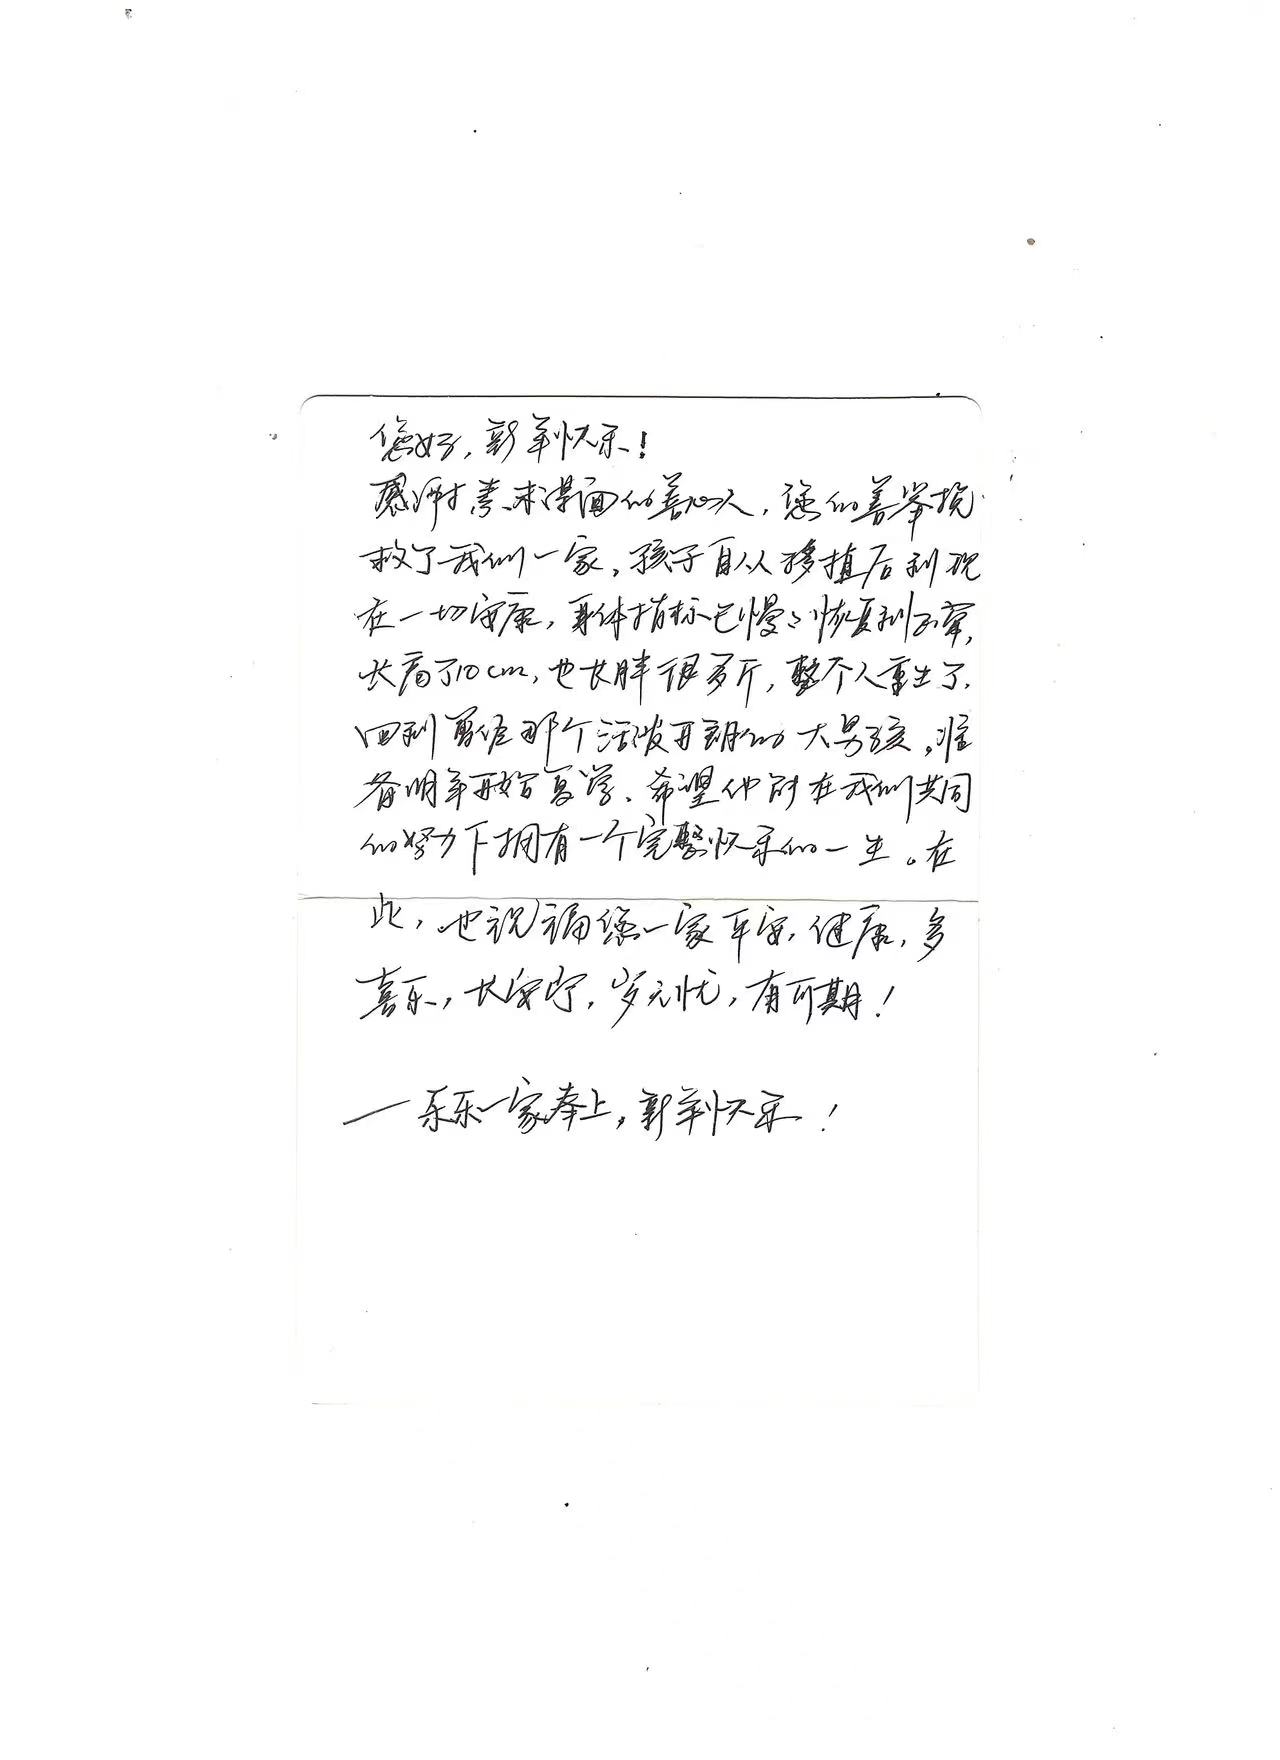 您好，新年快乐！
感谢素未谋面的善心人，您的善举挽
救了我们一家。孩子自从移植后到现
在一切安康，身体指标已慢慢恢复到正常，
长高了10cm，也长胖很多斤，整个人重生了，
回到曾经那个活泼开朗的大男孩。准
备明年开始复学、希望他能在我们共同
的努力下拥有一个完整快乐的一生。在
此，也祝福您一家平安，健康，多
喜乐，长安宁，岁无忧，有可期！
—乐乐一家奉上，新年快乐！